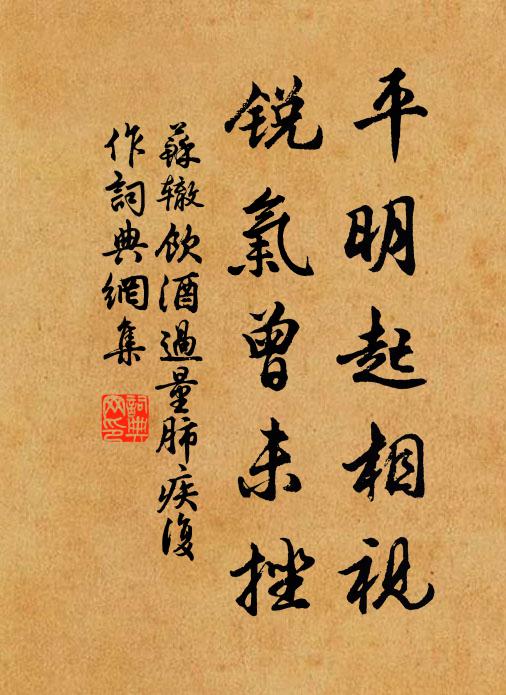 平明起相視
銳氣曾未挫
蘇轍飲酒過量肺疾復
作詞典網集
詞典
網印